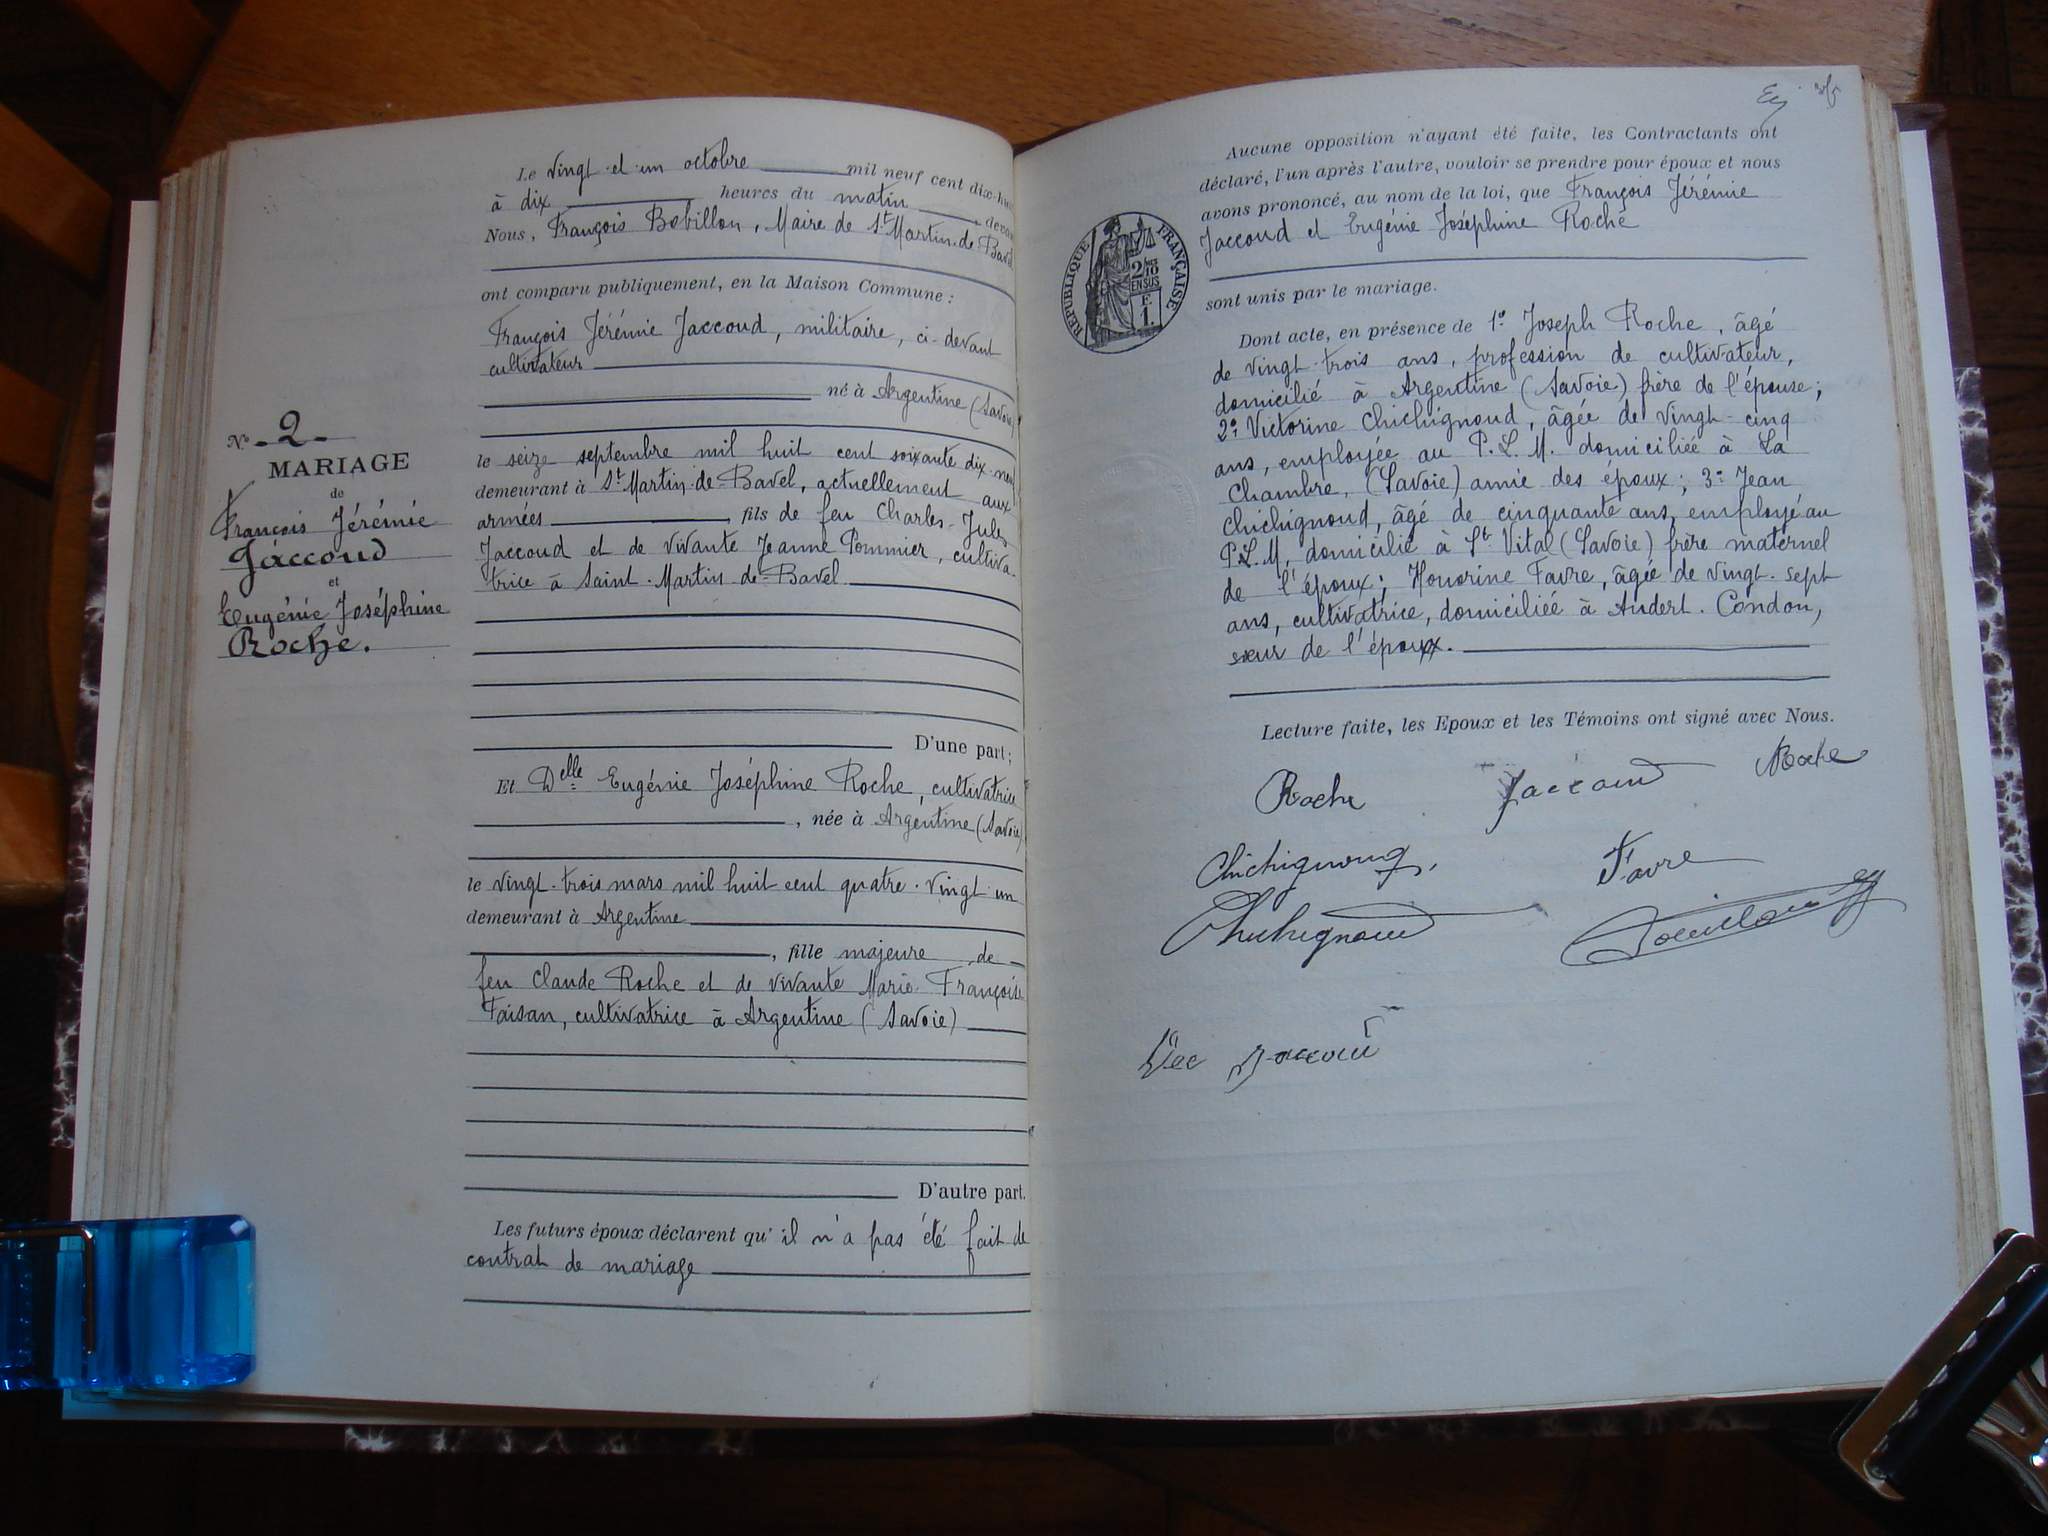 Le vingt-et-un octobre mil neuf cent dix-hui
à dix heures du matin devan
Nous, François Bobillon, Maire de St Martin-de-Bavel
ont comparu publiquement, en la Maison Commune :
François Jérémie Jaccoud, militaire, ci-devant
cultivateur
né à Argentine (Savoie)
le seize septembre mil huit cent soixante dix-neuf
demeurant à St Martin-de-Bavel, actuellement aux
armées, fils de feu Charles-Jules
Jaccoud et de vivante Jeanne Pommier, cultiva-
trice à Saint-Martin-de-Bavel
D'une part;
Et Delle Eugénie Joséphine Roche, cultivatrice
, née à Argentine (Savoie)
le vingt-trois mars mil huit cent quatre-vingt-un
demeurant à Argentine
, fille majeure de
feu Claude Roche et de vivante Marie-Françoise
Faisan, cultivatrice à Argentine (Savoie)
D'autre part.
Les futurs époux déclarent qu'il n'a pas été fait de
contrat de mariage
N° -2-
MARIAGE
de
François Jérémie
Jaccoud
et
Eugénie Joséphine
Roche.
Aucune opposition n'ayant été faite, les Contractants ont
déclaré, l'un après l'autre, vouloir se prendre pour époux et nous
avons prononcé, au nom de la loi, que François Jérémie
Jaccoud et Eugénie Joséphine Roche
RÉPUBLIQUE FRANÇAISE
2 MES
10
EN SUS
F.
1.
sont unis par le mariage.
Dont acte, en présence de 1° Joseph Roche, âgé
de vingt-trois ans, profession de cultivateur,
domicilié à Argentine (Savoie) frère de l'épouse;
2° Victorine Chichignoud, âgée de vingt-cinq
ans, employée au P.L.M. domiciliée à La
Chambre, (Savoie) amie des époux; 3° Jean
Chichignoud, âgé de cinquante ans, employé au
P.L.M, domicilié à St Vital (Savoie) frère maternel
de l'époux; Honorine Favre, âgée de vingt-sept
ans, cultivatrice, domiciliée à Andert-Condon,
sœur de l'époux.
Lecture faite, les Epoux et les Témoins ont signé avec Nous.
Roche Jaccoud Roche
Chichignoud, Favre
Chichignoud
Jaccoud